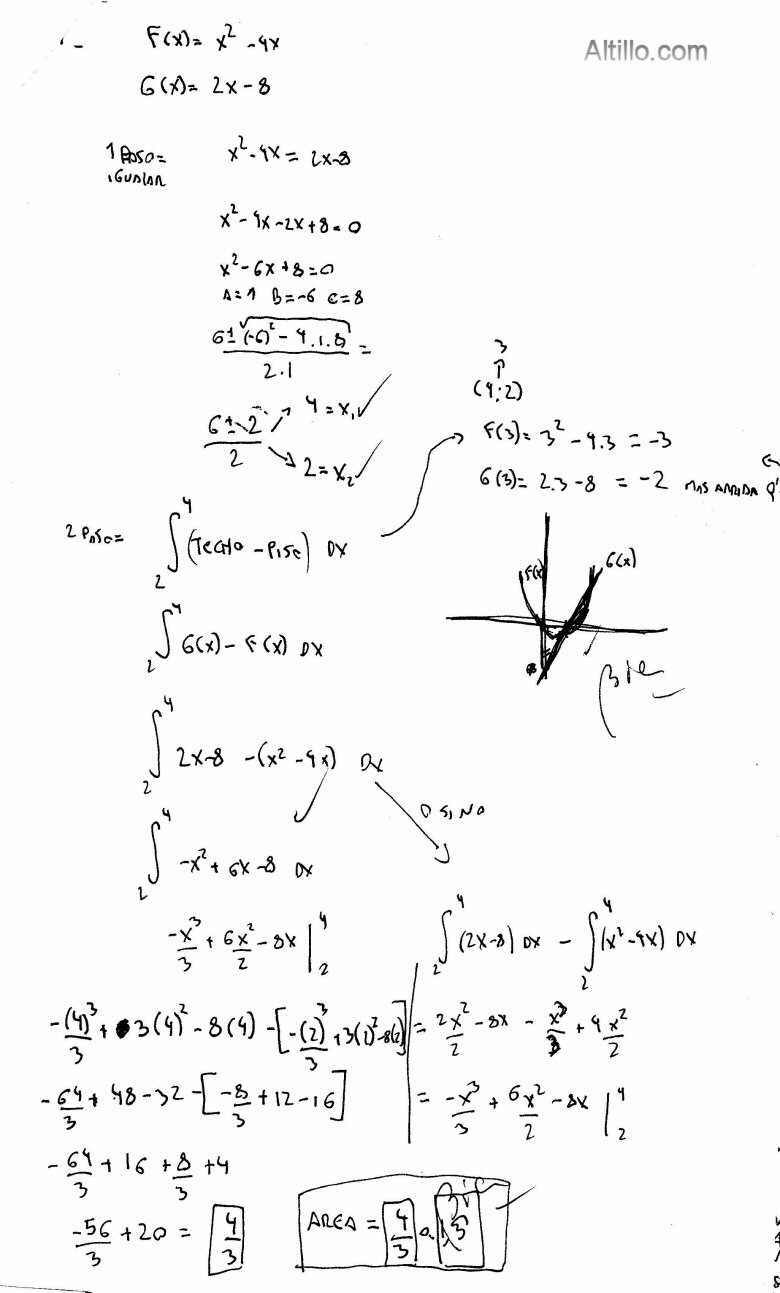 F(x)= x² -4x
Altillo.com
G(x)= 2x-8
1 PASO= x²-4x = 2x-8
IGUALAR
x²-4x-2x+8=0
x²-6x+8=0
A=1 B=-6 C=8
6±√(-6)²-4.1.8 / 2.1 =
6±2 / 2
4=x₁ ✓
2=x₂ ✓
3
↑
(4;2)
F(3)= 3²-4.3 = -3
G(3)= 2.3-8 = -2 MAS ARRIBA
2 PASO= ∫₂⁴ (TECHO - PISO) DX
F(x) G(x)
BIE
∫₂⁴ G(x) - F(x) DX
∫₂⁴ 2x-8 -(x²-4x) DX
O SINO
∫₂⁴ -x²+6x-8 DX
-x³/3 + 6x²/2 -8x |₂⁴
∫₂⁴ (2x-8) DX - ∫₂⁴ (x²-4x) DX
-(4)³/3 + 3(4)² - 8(4) - [-(2)³/3 + 3(2)²-8(2)]
= 2x²/2 - 8x - x³/3 + 4x²/2
-64/3 + 48-32 - [-8/3 + 12-16]
= -x³/3 + 6x²/2 - 8x |₂⁴
-64/3 + 16 + 8/3 + 4
-56/3 + 20 = 4/3
AREA = 4/3